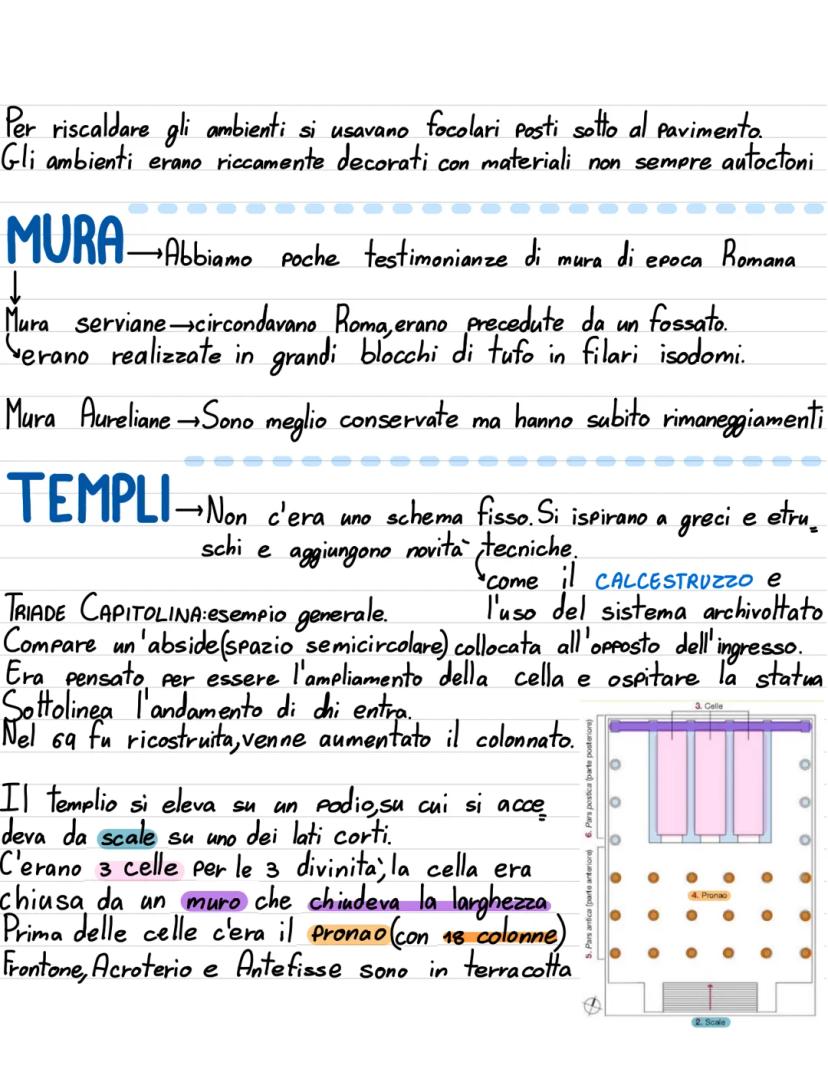 Per riscaldare gli ambienti si usavano focolari posti sotto al pavimento.
Gli ambienti erano riccamente decorati con materiali non sempre autoctoni
MURA→Abbiamo poche testimonianze di mura di epoca Romana
Mura serviane→circondavano Roma, erano precedute da un fossato.
erano realizzate in grandi blocchi di tufo in filari isodomi.
Mura Aureliane→Sono meglio conservate ma hanno subito rimaneggiamenti
TEMPLI→Non c'era uno schema fisso. Si ispirano a greci e etru=
schi e aggiungono novità tecniche.
come il CALCESTRUZZO e
l'uso del sistema archivoltato
TRIADE CAPITOLINA: esempio generale.
Compare un'abside (spazio semicircolare) collocata all'opposto dell'ingresso.
Era pensato per essere l'ampliamento della cella e ospitare la statua
Sottolinea l'andamento di chi entra.
Nel 69 fu ricostruita, venne aumentato il colonnato.
Il templio si eleva su un podio, su cui si acce=
deva da scale su uno dei lati corti.
C'erano 3 celle per le 3 divinità, la cella era
chiusa da un muro che chiudeva la larghezza
Prima delle celle c'era il pronao (con 18 colonne)
Frontone, Acroterio e Antefisse sono in terracotta
3. Celle
6. Pars postica (parte posteriore)
4. Pronao
5. Pars antica (parte anteriore)
2. Scale